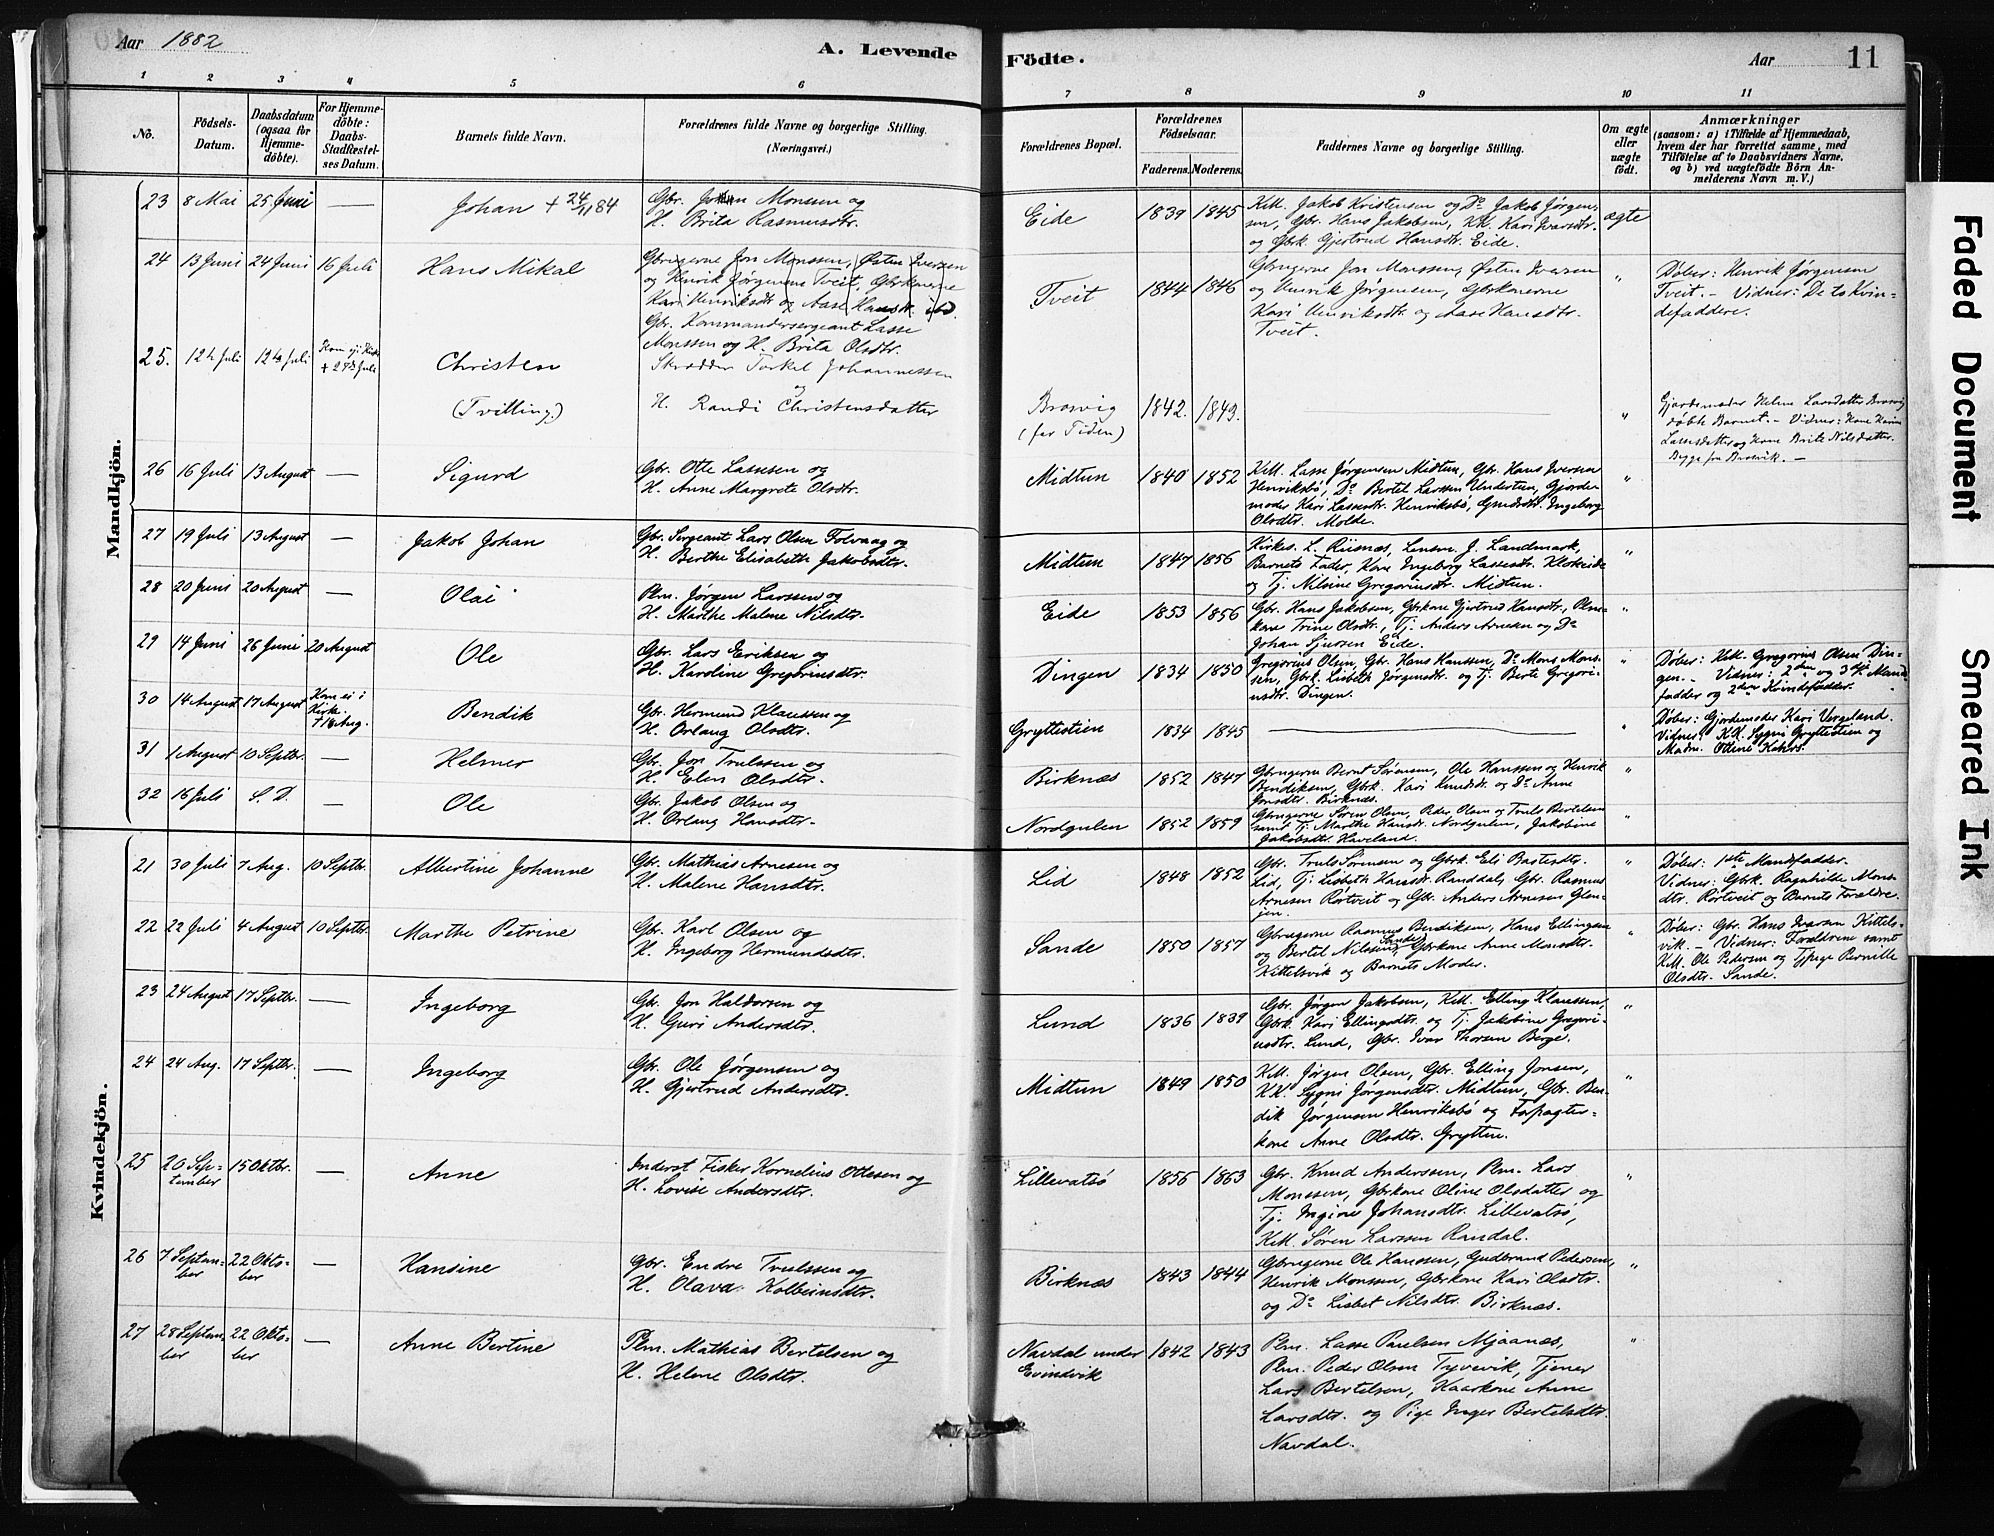 Aar 1882
A. Levende
Födte.
Aar
11
1 2 3 4 5 6 7 8 9 10 11
No.
Födsels-Datum.
Daabsdatum (ogsaa for Hjemme-döbte).
For Hjemme-döbte: Daabs-Stadfæstel-ses Datum.
Barnets fulde Navn.
Forældrenes fulde Navne og borgerlige Stilling.
(Næringsvei.)
Forældrenes Bopæl.
Forældrenes Födselsaar.
Faderens. Moderens.
Faddernes Navne og borgerlige Stilling.
Om ægte eller uægte födt.
Anmærkninger
(saasom: a) i Tilfælde af Hjemmedaab,
hvem der har forrettet samme, med
Tilföielse af to Daabsvidners Navne,
og b) ved uægtefödte Börn An-
melderens Navn m. V.)
Mandkjön.
23 8 Mai 25. Juni — Johan + 24/11 84 Gbr. Johan Monssen og
H. Brita Rasmusdtr. Eide 1839 1845 KM. Jakob Kristensen og Do Jakob Jørgen-
sen, Gbr. Hans Jakobsen, KK. Kari Ivarsdtr.
og Gbrk. Gjertrud Hansdtr. Eide. ægte
24 13 Juni 24 Juni 16 Juli Hans Mikal Gbrugerne Jon Monssen, Østen Iversen
og Henrik Jørgensen Tveit, Gbrkonerne
Kari Henriksdtr og Aase Hansdtr. ibd.
Gbr. Kommandersergeant Lasse
Monssen og H. Brita Olsdtr. Tveit 1844 1846 Gbrugerne Jon Monssen, Østen Iversen
og Henrik Jørgensen, Gbrkonerne
Kari Henriksdtr og Aase Hansdtr.
Tveit. " Døber: Henrik Jørgensen
Tveit. – Vidner: De to Kvin-
defaddere.
25. 12te Juli 12te Juli Kom ej i Kirke
+ 29de Juli Christen
(Tvilling.) Skrædder Torkel Johannessen
og
H. Randi Christensdatter Brosvig
(for Tiden) 1842. 1849. — " Gjordemoder Helene Larsdatter Brosvig
døbte Barnet. – Vidner: Kone Karen
Lassesdatter og Kone Brite Nilsdatter.
Begge fra Brosvik. –
26 16 Juli 13 August — Sigurd Gbr. Otte Lassesen og
H. Anne Margrete Olsdtr. Midtun 1840 1852 KM. Lasse Jørgensen Midtun, Gbr. Hans Iversen
Henriksbø, Do Bertel Larssen Undertun, Gjorde-
moder Kari Lassesdtr. Henriksbø, Gmdsdtr. Ingeborg
Olsdtr. Molde. "
27 19 Juli 13 August — Jakob Johan Gbr. Sergeant Lars Olsen Folvaag og
H. Berthe Elisabeth Jakobsdtr. Midtun 1847 1856 Kirkes. L. Riisnæs, Lensm. J. Landmark,
Barnets Fader, Kone Ingeborg Lassesdtr. Klokeide
og Tj. Nilsine Gregoriusdtr. Midtun. "
28 20 Juni 20 August — Olai Plm. Jørgen Larssen og
H. Marthe Malene Nilsdtr. Eide 1853 1856 Gbr. Hans Jakobsen, Gbrkone Gjertrud Hansdtr., Plm-
kone Trine Olsdtr., Tj. Anders Arnesen og Do
Johan Sjursen Eide. "
29 14 Juni 26 Juni 20 August Ole Gbr. Lars Eriksen og
H. Karoline Gregoriusdtr. Dingen 1834 1850 Gregorius Olsen, Gbr. Hans Hanssen, Do Mons Mons-
sen, Gbrk. Lisbeth Jørgensdtr og Tj. Berte Gregori-
usdtr. Dingen. " Døber: KM. Gregorius Olsen Din-
gen. – Vidner: 2den og 3die Mand-
fadder og 2den Kvindefadder.
30 14 August 17 August Kom ei i
Kirke.
+ 18 Aug. Bendik Gbr. Hermund Klaussen og
H. Orlaug Olsdtr. Gryttestien 1834 1845 — " Døber: Gjordemoder Kari Vergeland.
Vidner: KK. Sygni Gryttestien og
Madm. Ottine Kahrs.
31 1 August 10 Septbr. — Helmer Gbr. Jon Trulssen og
H. Elen Olsdtr. Birknæs 1852 1847 Gbrugerne Bernt Sørensen, Ole Hanssen og Henrik
Bendiksen, Gbrk. Kari Knudsdtr og Do Anne
Jonsdtr. Birknæs. "
32 16 Juli S. D. — Ole Gbr. Jakob Olsen og
H. Orlaug Hansdtr. Nordgulen 1852 1859 Gbrugerne Søren Olsen, Peder Olsen og Truls Bertelsen
samt Tj. Marthe Hansdtr. Nordgulen, Jakobine
Jakobsdtr Haveland. "
Kvindekjön.
21 30 Juli 7 Aug. 10 Septbr. Albertine Johanne Gbr. Mathias Arnesen og
H. Malene Hansdtr. Lid 1848 1852 Gbr. Truls Sørensen og Gbrk. Eli Bastesdtr.
Lid, Tj. Lisbeth Hansdtr. Randdal, Gbr. Rasmus
Arnesen Rørtveit og Gbr. Anders Arnesen Glen-
jen. " Døber: 1ste Mandfadder.
Vidner: Gbrk. Ragnhilde Mons-
dtr. Rørtveit og Barnets Forældre.
22 22 Juli 4 August 10 Septbr. Marthe Petrine Gbr. Karl Olsen og
H. Ingeborg Hermundsdtr. Sande 1850 1857 Gbrugerne Rasmus Bendiksen, Hans Ellingsen
og Bertel Nilssen Sande, Gbrkone Anne Monsdtr.
Kittelsvik og Barnets Moder. " Døber: Gbr. Hans Ivarsen Kittels-
vik. – Vidner: Forældrene samt
KM. Ole Pedersen og Tjpige Pernille
Olsdtr. Sande.
23 24 August 17 Septbr. — Ingeborg Gbr. Jon Haldorsen og
H. Guri Andersdtr. Lund 1836 1839 Gbr. Jørgen Jakobsen, KM. Elling Klaussen,
Gbrk. Kari Ellingsdtr. og Tj. Jakobine Gregori-
usdtr. Lund, Gbr. Ivar Thorsen Berge. "
24 24 Aug. 17 Septbr. — Ingeborg Gbr. Ole Jørgensen og
H. Gjertrud Andersdtr. Midtun 1849 1850 KM. Jørgen Olsen, Gbr. Elling Jonsen,
KK. Sygni Jørgensdtr. Midtun, Gbr. Ben-
dik Jørgensen Henriksbø og Forpagter-
kone Anne Olsdtr. Grytten. "
25 20 Sep-
tember 15 Oktbr. — Anne Inderst Fisker Kornelius Ottesen og
H. Lovise Andersdtr. Lillevatsø 1856 1863 Gbr. Knud Anderssen, Plm. Lars
Monssen, Gbrkone Oline Olsdatter og
Tj. Ingine Johansdtr. Lillevatsø,
KM. Søren Larssen Randal. "
26 7 Septem-
ber 22 Okto-
ber — Hansine Gbr. Endre Trulssen og
H. Olava Kolbeinsdtr. Birknæs 1843 1844 Gbrugerne Ole Hanssen, Gudbrand Pedersen,
Henrik Monssen, Gbrkone Kari Olsdtr.
og Do Lisbet Nilsdtr. Birknæs. "
27 28 Septem-
ber 22 Okto-
ber — Anne Bertine Plm. Mathias Bertelsen og
H. Helene Olsdtr. Navdal under
Evindvik 1842 1843 Plm. Lasse Paulsen Mjaanæs,
Plm. Peder Olsen Tyvevik, Tjener
Lars Bertelsen, Kaarkone Anne
Larsdtr. og Pige Inger Bertelsdtr.
Navdal. "
Faded Document
Smeared Ink